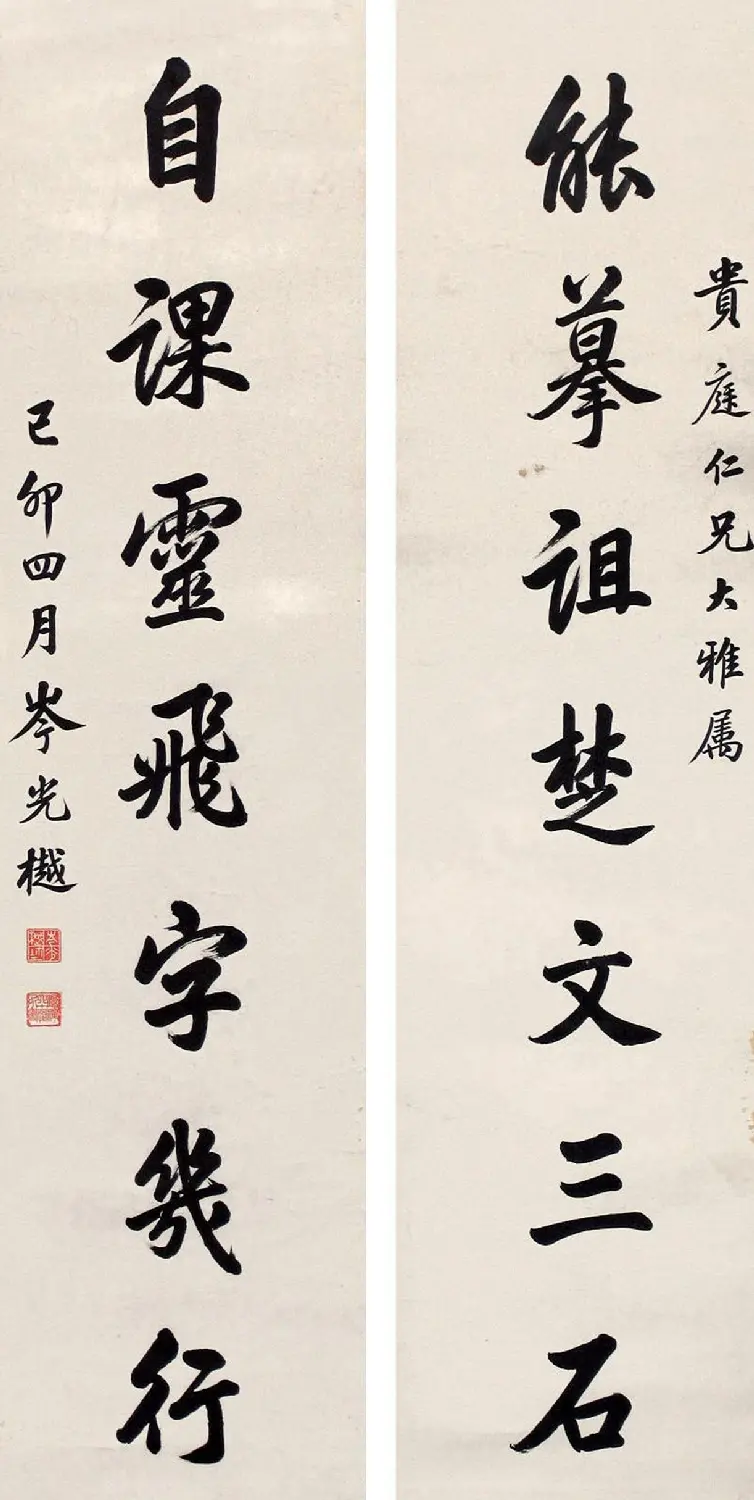 貴庭仁兄大雅属
能摹詛楚文三石
自課靈飛字幾行
己卯四月岑光樾